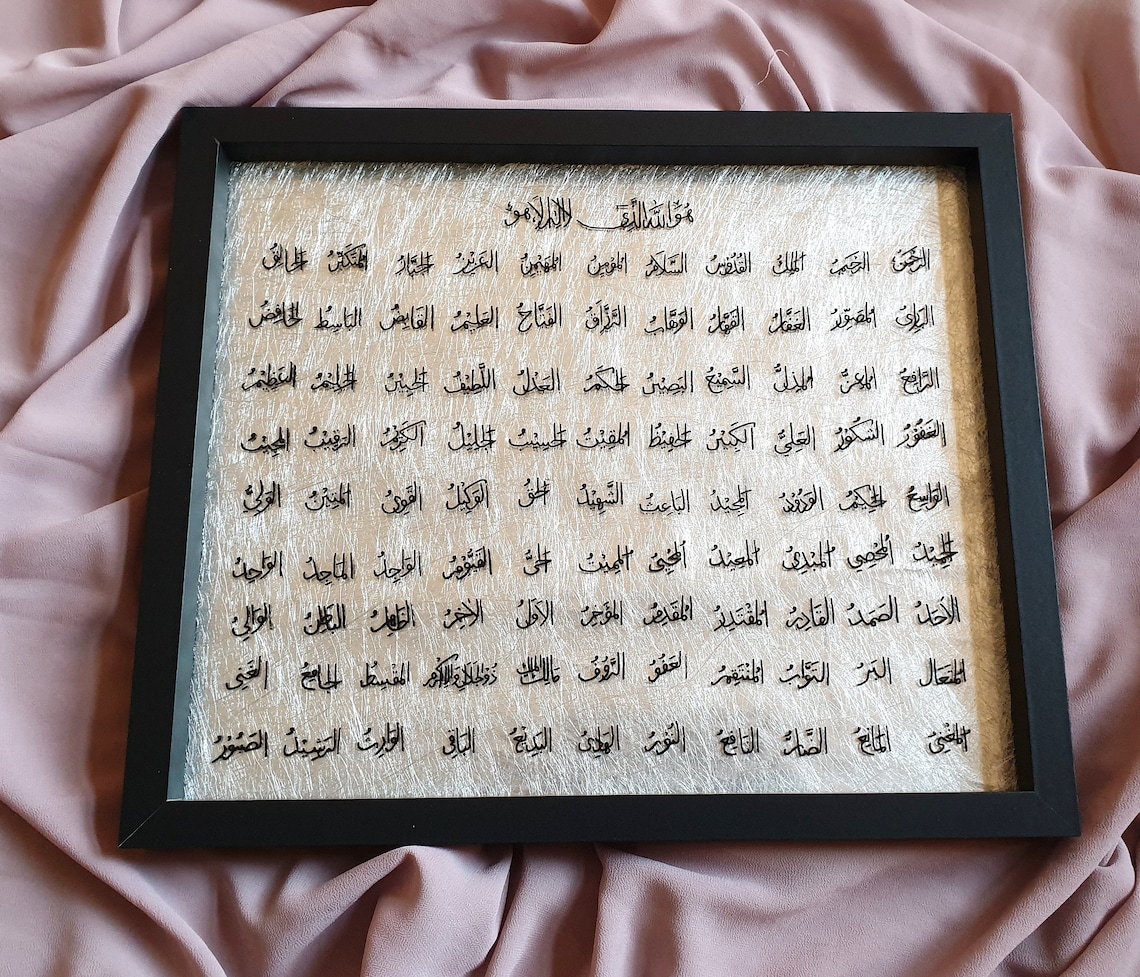 هُوَ اللهُ الَّذِي لَا إِلٰهَ إِلَّا هُوَ
الرَّحْمٰنُ الرَّحِيمُ المَلِكُ القُدُّوسُ السَّلَامُ المُؤْمِنُ المُهَيْمِنُ العَزِيزُ الجَبَّارُ المُتَكَبِّرُ الخَالِقُ
البَارِئُ المُصَوِّرُ الغَفَّارُ القَهَّارُ الوَهَّابُ الرَّزَّاقُ الفَتَّاحُ العَلِيمُ القَابِضُ البَاسِطُ الخَافِضُ
الرَّافِعُ المُعِزُّ المُذِلُّ السَّمِيعُ البَصِيرُ الحَكَمُ العَدْلُ اللَّطِيفُ الخَبِيرُ الحَلِيمُ العَظِيمُ
الغَفُورُ الشَّكُورُ العَلِيُّ الكَبِيرُ الحَفِيظُ المُقِيتُ الحَسِيبُ الجَلِيلُ الكَرِيمُ الرَّقِيبُ المُجِيبُ
الوَاسِعُ الحَكِيمُ الوَدُودُ المَجِيدُ البَاعِثُ الشَّهِيدُ الحَقُّ الوَكِيلُ القَوِيُّ المَتِينُ الوَلِيُّ
الحَمِيدُ المُحْصِي المُبْدِئُ المُعِيدُ المُحْيِي المُمِيتُ الحَيُّ القَيُّومُ الوَاجِدُ المَاجِدُ الوَاحِدُ
الأَحَدُ الصَّمَدُ القَادِرُ المُقْتَدِرُ المُقَدِّمُ المُؤَخِّرُ الأَوَّلُ الآخِرُ الظَّاهِرُ البَاطِنُ الوَالِي
المُتَعَالِ البَرُّ التَّوَّابُ المُنْتَقِمُ العَفُوُّ الرَّؤُوفُ مَالِكُ المُلْكِ ذُو الجَلَالِ وَالإِكْرَامِ المُقْسِطُ الجَامِعُ الغَنِيُّ
المُغْنِي المَانِعُ الضَّارُّ النَّافِعُ النُّورُ الهَادِي البَدِيعُ البَاقِي الوَارِثُ الرَّشِيدُ الصَّبُورُ